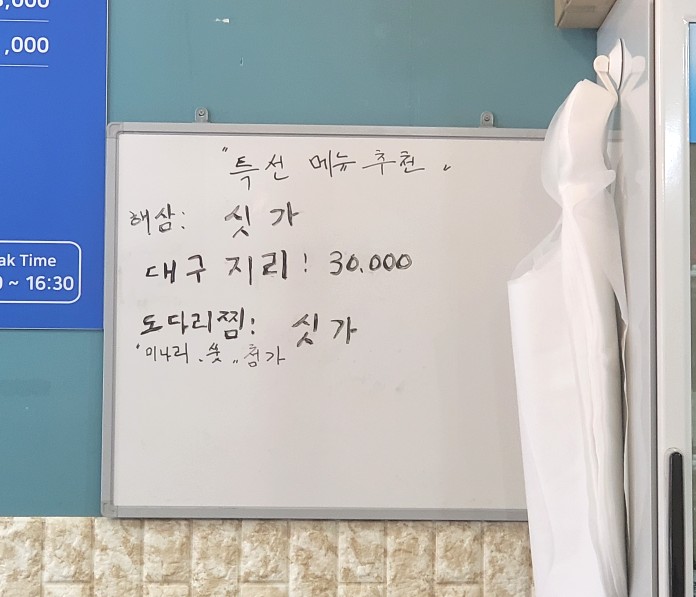 ,000
,000
ak Time
0 ~ 16:30
"특선 메뉴 추천"
해삼: 싯가
대구 지리! 30.000
도다리찜: 싯가
"미나리, 쑥" 첨가